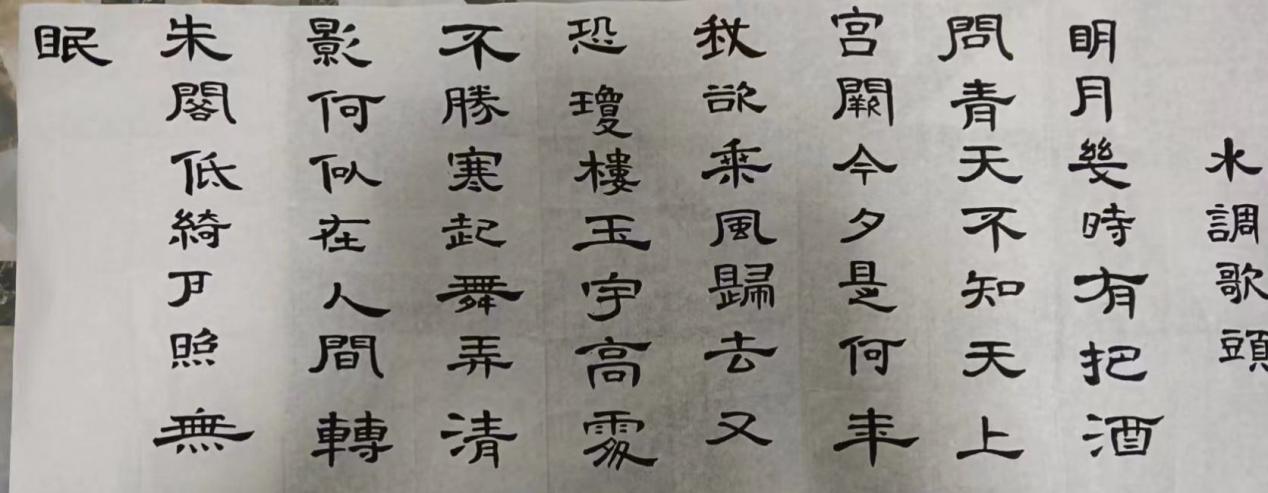 水調歌頭
明月幾時有把酒
問青天不知天上
宮闕今夕是何年
我欲乘風歸去又
恐瓊樓玉宇高處
不勝寒起舞弄清
影何似在人間轉
朱閣低綺戶照無
眠